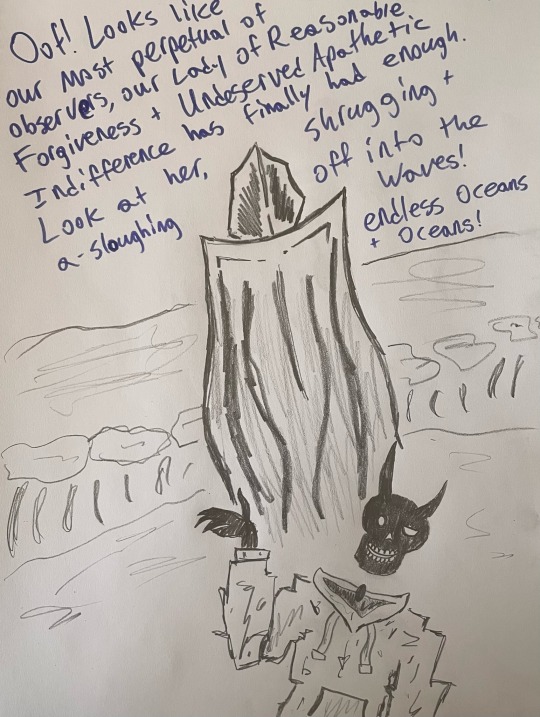 Oof! Looks like
our most perpetual of
observers, our Lady of Reasonable
Forgiveness + Undeserved Apathetic
Indifference has finally had enough.
Look at her, shrugging +
a-sloughing off into the
Waves!
endless Oceans
+ Oceans!